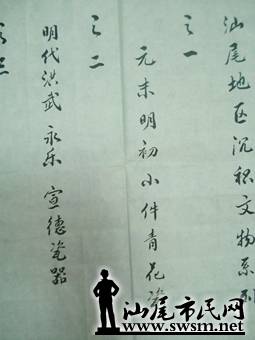 汕尾地区沉积文物系列
之一
元末明初小件青花瓷
之二
明代洪武永乐宣德瓷器
之三
汕尾市民网
www.swsm.net